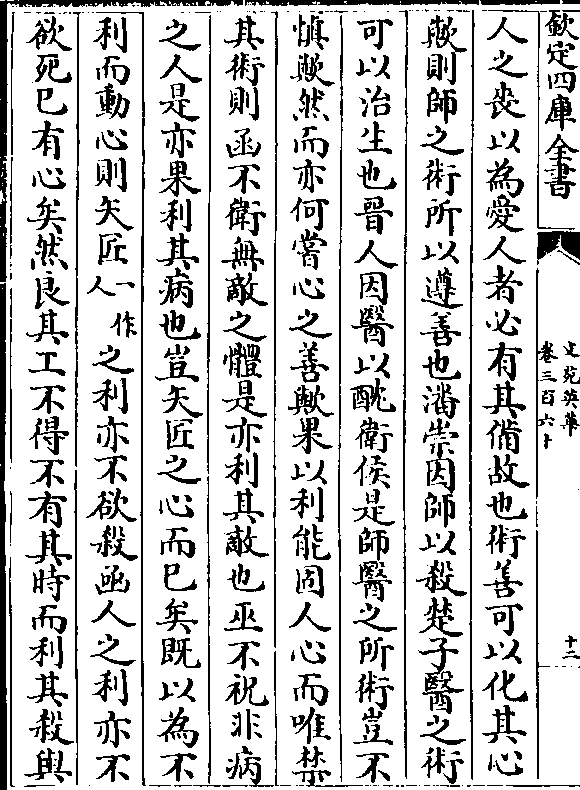 欽定四庫全書
文苑英華
卷三百六十
十二
人之喪以為愛人者必有其備故也術善可以化其心
歟則師之術所以遵善也潘崇因師以殺楚子醫之術
可以治生也晉人因醫以酖衛侯是師醫之所術豈不
慎歟然而亦何嘗心之善歟果以利能固人心而唯禁
其術則函不衛無敵之體是亦利其敵也巫不祝非病
之人是亦果利其病也豈矢匠之心而已矣既以為不
利而動心則矢匠一作人之利亦不欲殺函人之利亦不
欲死已有心矣然良其工不得不有其時而利其殺與